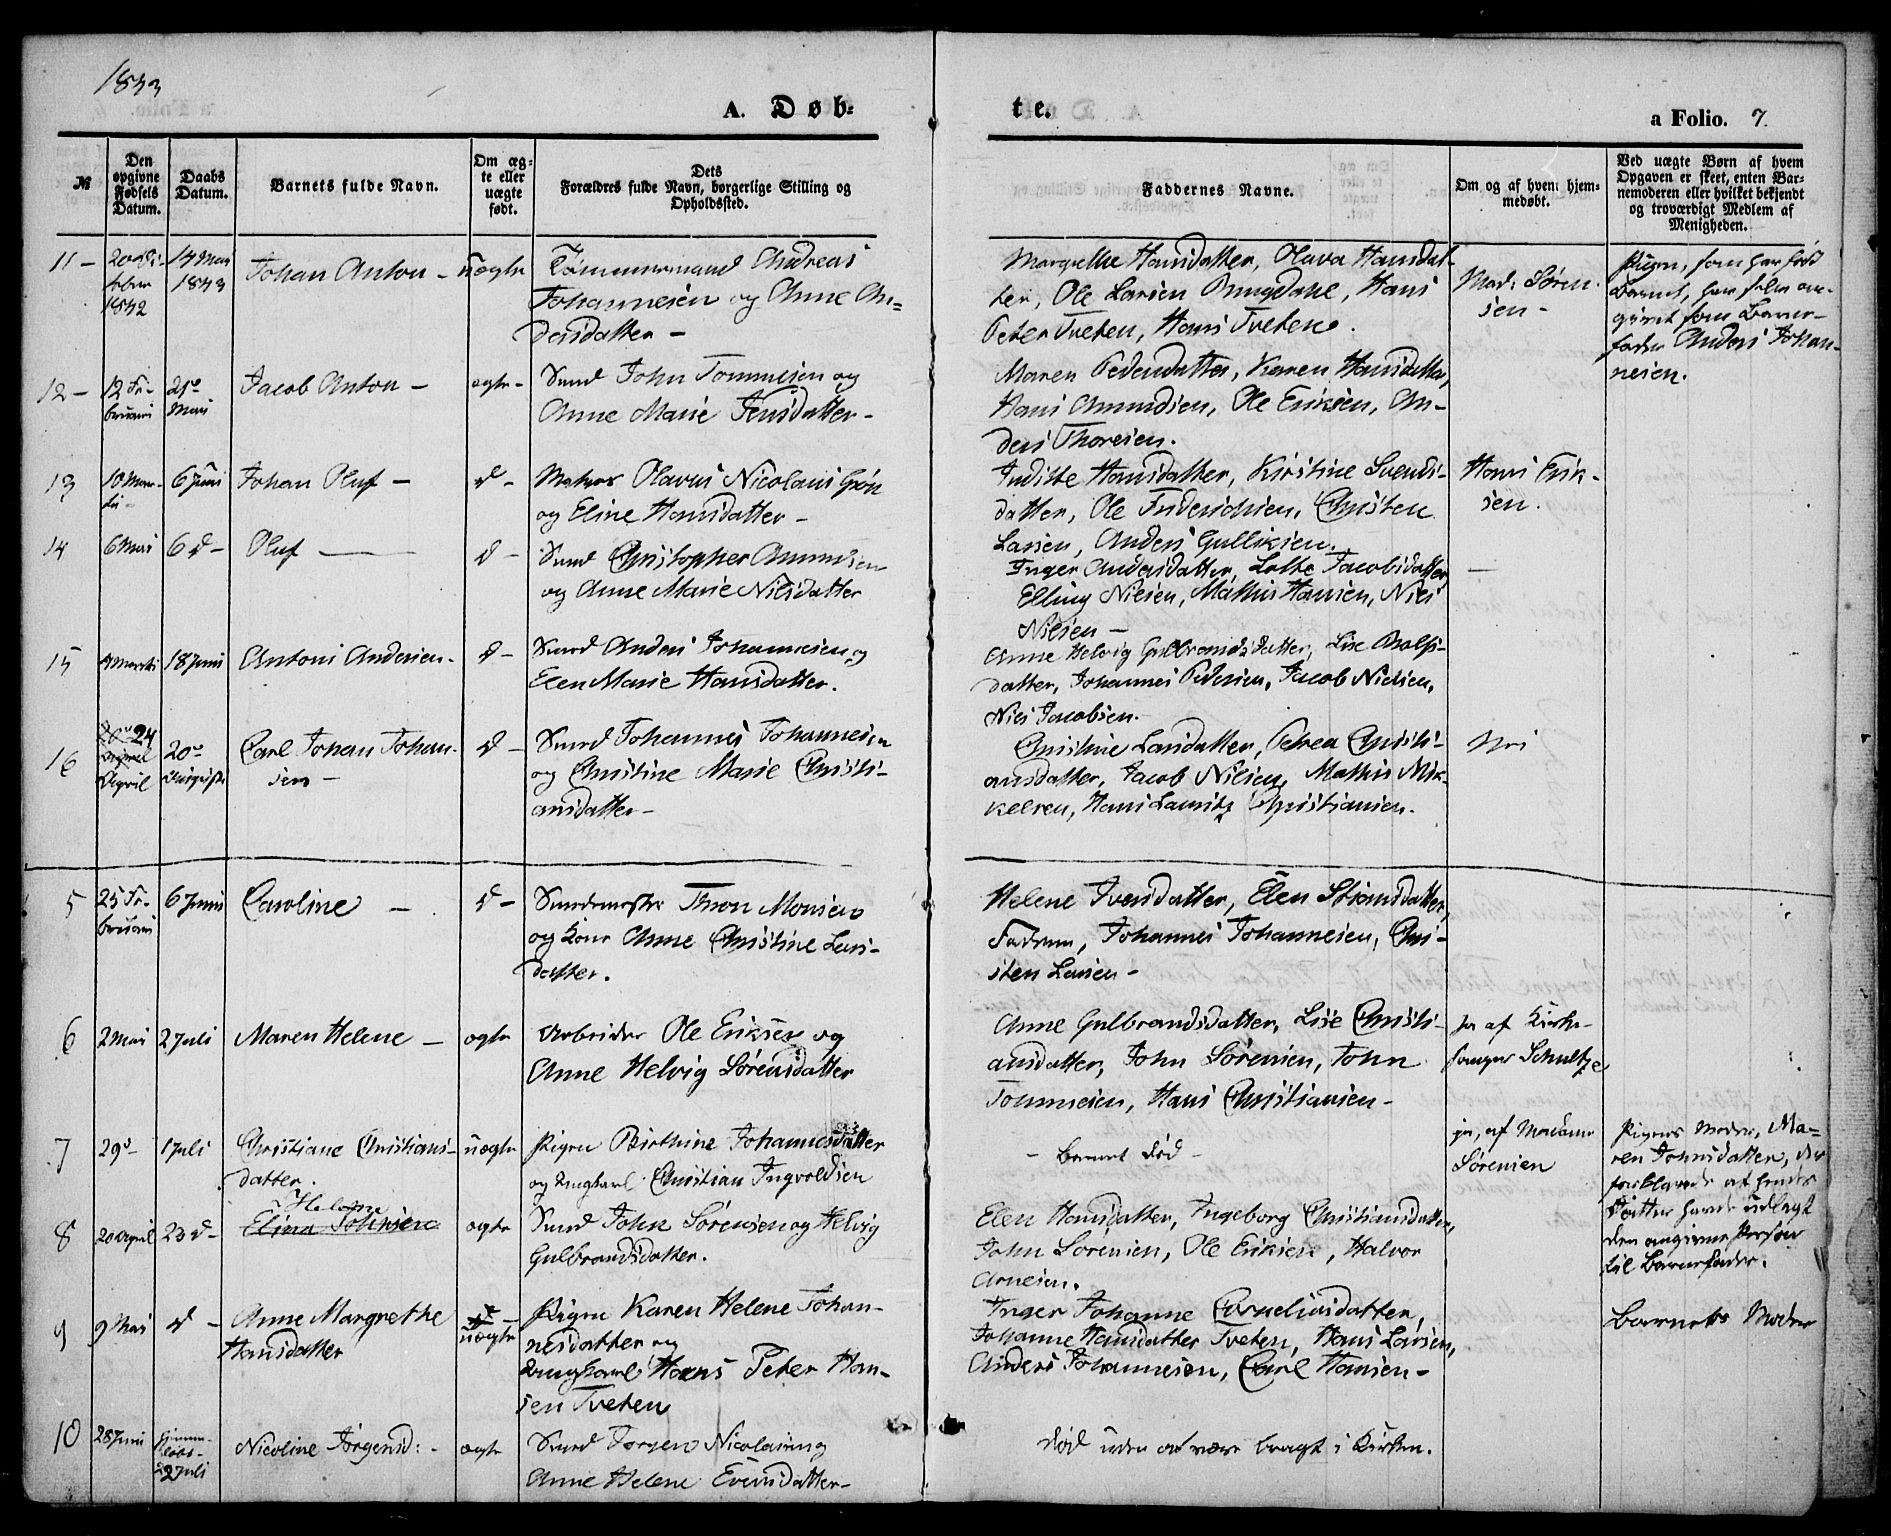 1843
A. Døb-
te.
a Folio. 7.
№
Den opgivne Fødsels Datum.
Daabs Datum.
Barnets fulde Navn.
Om æg-
te eller
uægte
født.
Dets
Forældres fulde Navn, borgerlige Stilling og
Opholdssted.
Faddernes Navne.
Om og af hvem hjem-
medøbt.
Ved uægte Børn af hvem
Opgaven er skeet, enten Bar-
nemoderen eller hvilket bekjendt
og troværdigt Medlem af
Menigheden.
11 -
1842
14 Mai
1843
Johan Anton -
uægte
Tømmermand Andreas
Johannesen og Anne An-
dersdatter -
Margrethe Hansdatter, Olava Hansdat-
ter, Ole Larsen Hans
Peter Tveten, Hans Tveten.
Mad. Søren-
sen -
Pigen, som har født
Barnet, har selv an-
givet som Barne-
fader Anders Johan-
nesen.
12 -
12 Fe-
bruari
21de
Mai
Jacob Anton -
ægte -
Svend John Tommesen og
Anne Marie Jensdatter -
Maren Pedersdatter, Karen Hansdatter,
Hans Amundsen, Ole Eriksen, An-
ders Thoresen.
13
10 Mar-
6 Juni
Johan Oluf -
d -
Olavus Nicolaus Grøn
og Eline Hansdatter -
Judithe Hansdatter, Kirstine Svends-
datter, Ole Christen
Larsen, Anders Gulliksen.
Hans Erik-
sen.
14
6 Mai
6 d -
Oluf -
d -
Svend Christopher Amundsen
og Anne Marie Nilsdatter
Inger Andersdatter, Jacobsdatter
Elling Nilsen, Mathis Hansen, Niels
Nilsen -
-
15
Martsi
18 Juni
Antoni Andersen -
d -
Svend Anders Johannesen og
Elen Marie Hansdatter.
Anne Helvig Gulbrandsdatter, Lise
datter, Johannes Pedersen, Jacob Nielsen,
Niels Jacobsen.
16
24
April
20de
Carl Johan Johan-
sen -
d -
Svend Johannes Johannesen
og Christine Marie Christi-
ansdatter -
Christine Larsdatter, Petrea Christi-
ansdatter, Jacob Nilsen, Mathis Mik-
kelsen, Hans Lauritz Christiansen.
Nei
5
25 Fe-
bruari
6 Juni
Caroline -
d -
Thron Monsen
og Kone Anne Christine Lars-
datter.
Helene Iversdatter, Elen
Faderen, Johannes Johannesen, Chri-
sten Larsen -
6
2 Mai
2 Juli
Maren Helene -
ægte
Arbeider Ole Eriksen og
Anne Helvig Sørensdatter
Anne Gulbrandsdatter, Lise Christi-
ansdatter, John Sørensen, John
Tommesen, Hans Christiansen -
ja af Kirke-
sanger Schultze
7
29 d
1 Juli
Christiane Christians-
datter.
uægte
Pigen Birthine Johannesdatter
og Ungkarl Christian Ingvoldsen
- Barnet død -
ja, af Madame
Sørensen
Pigens Moder, Ma-
ren Johnsdatter, der
forklarede at hendes
Datter havde udlagt
den angivne Person
til Barnefader.
8
20 April
23 d -
Helene
Johnsen
ægte
Svend John Sørensen og Helvig
Gulbrandsdatter.
Elen Hansdatter, Ingeborg Christiansdatter,
John Sørensen, Ole Eriksen, Halvor
Arnesen.
9
9 Mai
d -
Anne Margrethe
Hansdatter
uægte
Pigen Karen Helene Johan-
nesdatter og
Ungkarl Hans Peter Han-
sen Tveten
Inger Johanne Corneliusdatter,
Johanne Hansdatter Tveten, Hans Larsen,
Anders Johannesen, Carl Hansen -
Barnets Moder
10
28 Juni
Hjemme-
døbt -
2 Juli
Nicoline Jørgensd: -
ægte
Svend Jørgen Nicolaisen og
Anne Helene Evensdatter -
død uden at være bragt i Kirken.